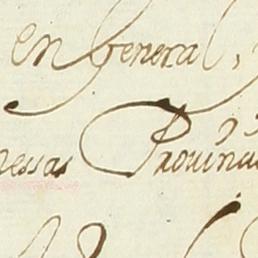 en general,
nessas Prouinci